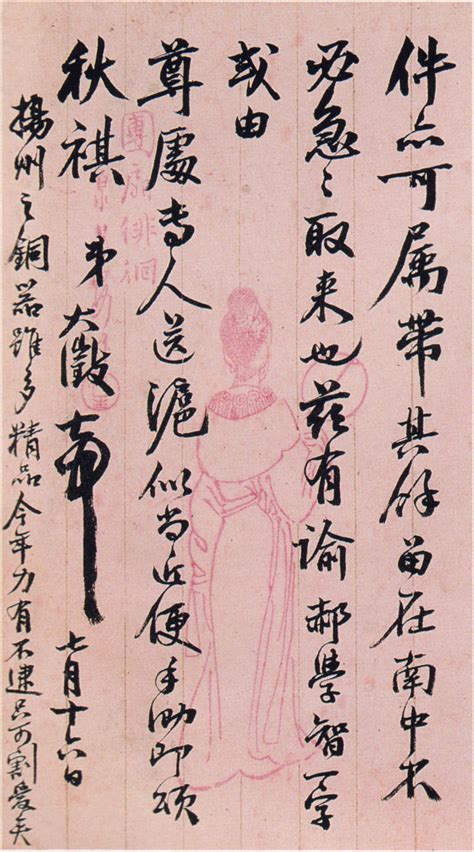 件亦可属带其餘留在南中不
必急〻取来也兹有諭郝學智一字
或由
尊處专人送滬似尚近便手泐即頌
秋祺 弟大澂頓首 七月十六日
揚州之銅器雖多精品今年力有不逮只可割愛矣
團扇徘徊